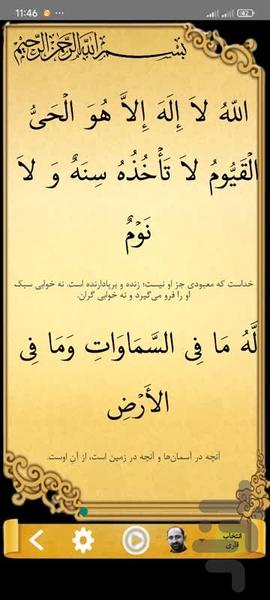 11:46
بسم الله الرحمن الرحیم
اللّهُ لاَ إِلَهَ إِلاَّ هُوَ الْحَيُّ
الْقَيُّومُ لاَ تَأْخُذُهُ سِنَهٌ وَ لاَ
نَوْمٌ
خداست که معبودی جز او نیست؛ زنده و برپادارنده است. نه خوابی سبک
او را فرو می‌گیرد و نه خوابی گران.
لَّهُ مَا فِي السَّمَاوَاتِ وَمَا فِي
الأَرْضِ
آنچه در آسمان‌ها و آنچه در زمین است، از آنِ اوست.
انتخاب
قاری